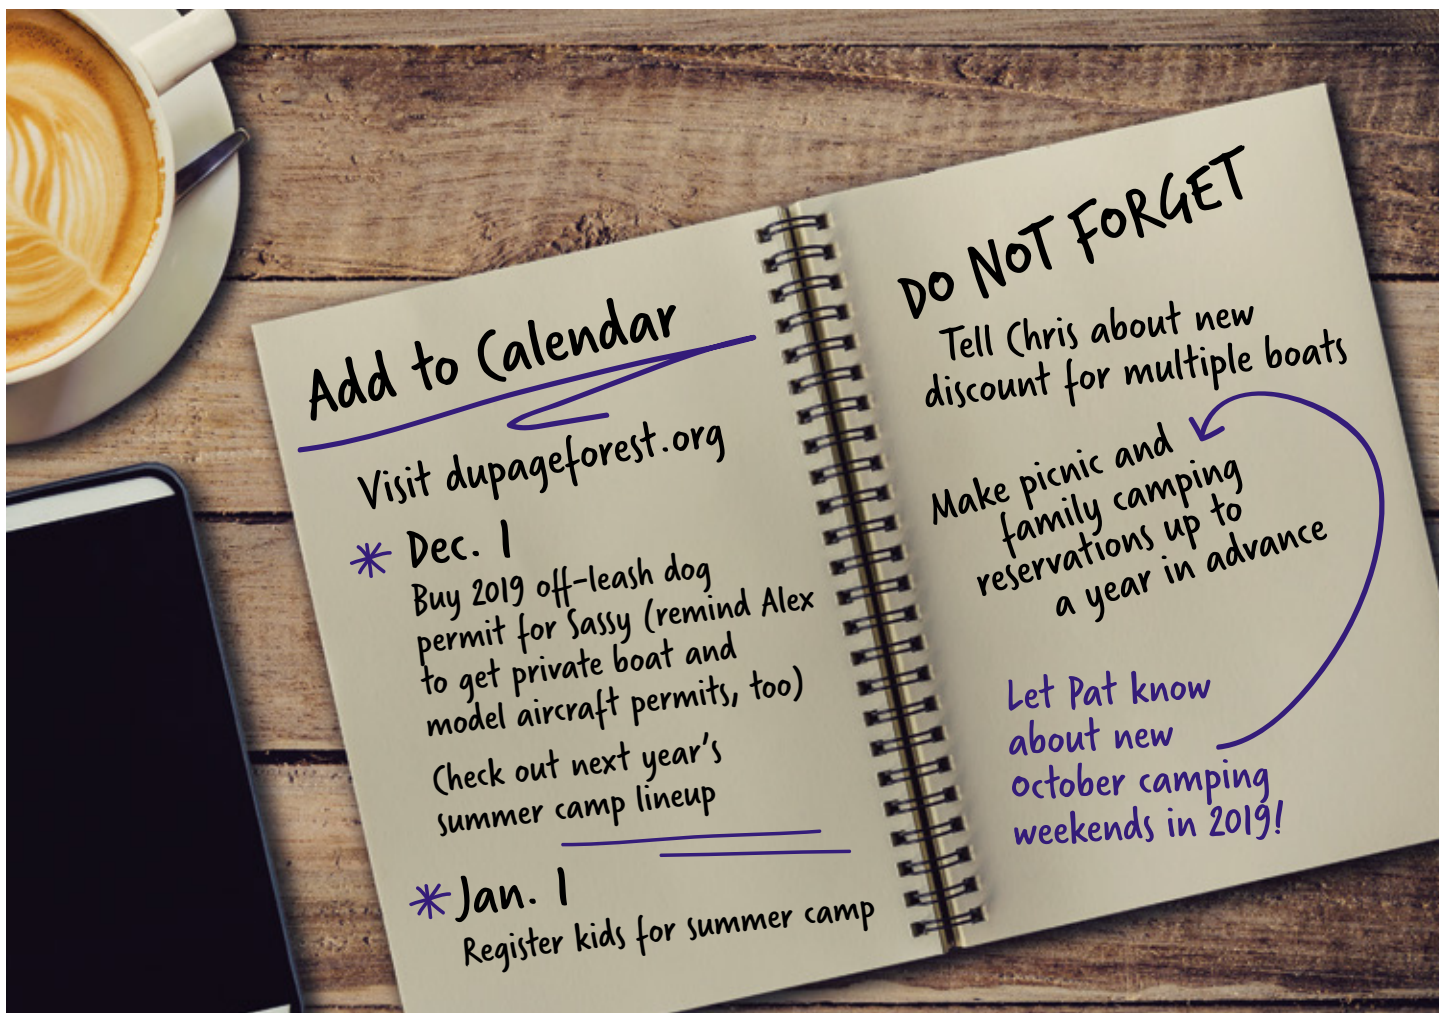 Add to Calendar
Visit dupageforest.org
Dec. 1
Buy 2019 off-leash dog
permit for Sassy (remind Alex
to get private boat and
model aircraft permits, too)
Check out next year's
summer camp lineup
Jan. 1
Register kids for summer camp
DO NOT FORGET
Tell Chris about new
discount for multiple boats
Make picnic and
family camping
reservations up to
a year in advance
Let Pat know
about new
October camping
weekends in 2019!